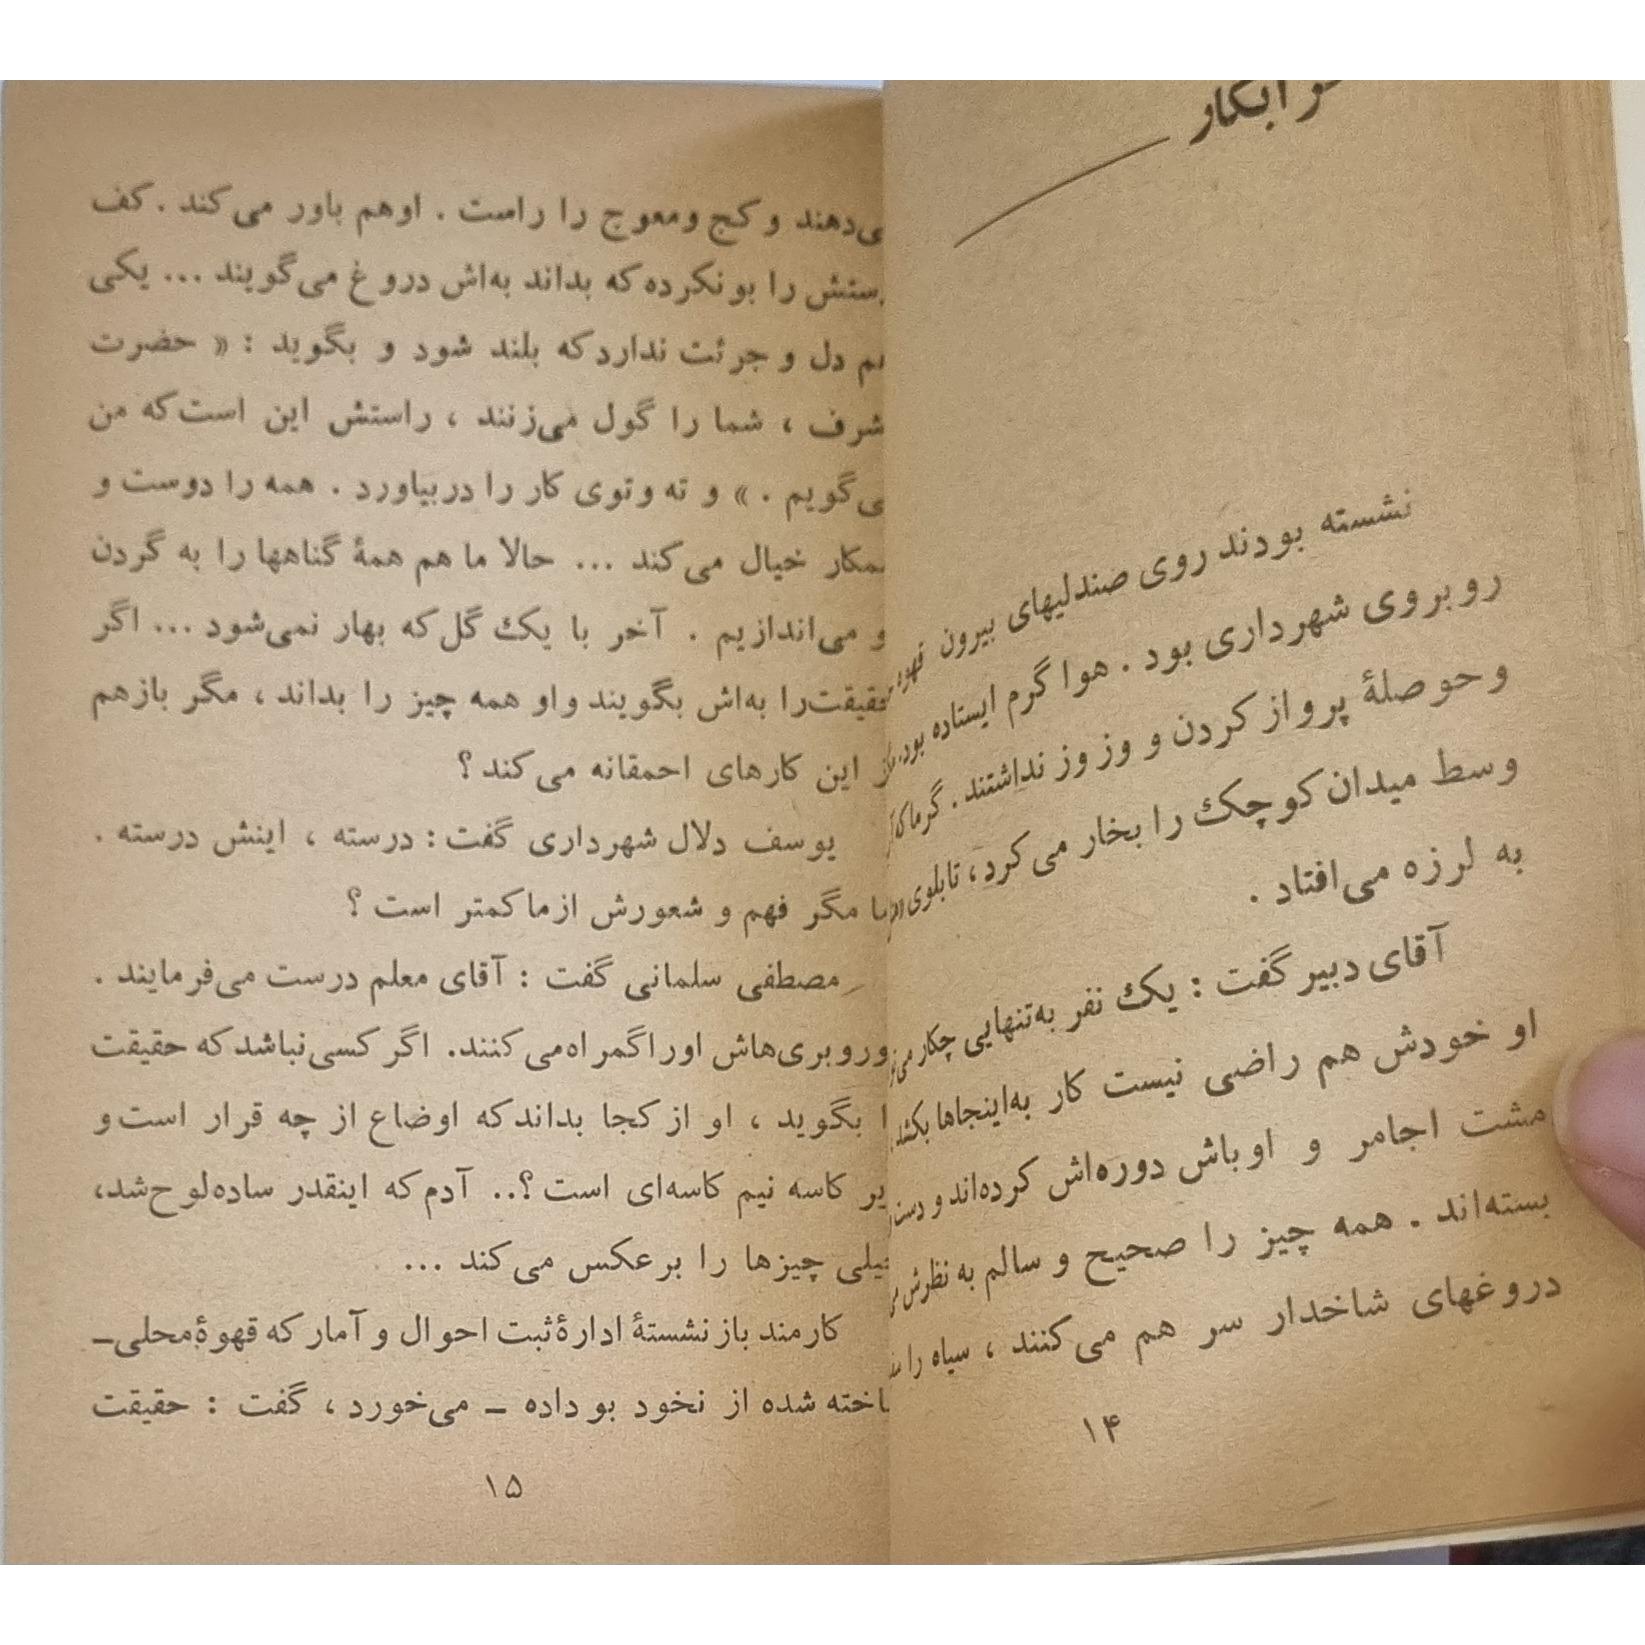 نشسته بودند روی صندلیهای بیرون
روبروی شهرداری بود . هوا گرم ایستاده بود.
و حوصلهٔ پرواز کردن و وزوز نداشتند . گرما
وسط میدان کوچک را بخار می‌کرد ، تابلوی
به لرزه می‌افتاد .
آقای دبیر گفت : یک نفر به‌تنهایی چکار
او خودش هم راضی نیست کار به‌اینجاها بکشد .
مشت اجامر و اوباش دوره‌اش کرده‌اند و
بسته‌اند . همه چیز را صحیح و سالم به نظرش
دروغهای شاخدار سر هم می‌کنند ، سیاه را
۱۴
و کج و معوج را راست . او هم باور می‌کند . کف
را بو نکرده که بداند به‌اش دروغ می‌گویند ... یکی
دل و جرئت ندارد که بلند شود و بگوید : « حضرت
، شما را گول می‌زنند ، راستش این است که من
. » و ته و توی کار را دربیاورد . همه را دوست و
خیال می‌کند ... حالا ما هم همهٔ گناهها را به گردن
می‌اندازیم . آخر با یک گل که بهار نمی‌شود ... اگر
حقیقت‌را به‌اش بگویند و او همه چیز را بداند ، مگر بازهم
این کارهای احمقانه می‌کند ؟
یوسف دلال شهرداری گفت : درسته ، اینش درسته .
مگر فهم و شعورش از ما کمتر است ؟
مصطفی سلمانی گفت : آقای معلم درست می‌فرمایند .
دوروبری‌هاش او را گمراه می‌کنند. اگر کسی نباشد که حقیقت
بگوید ، او از کجا بداند که اوضاع از چه قرار است و
زیر کاسه نیم کاسه‌ای است ؟.. آدم که اینقدر ساده‌لوح شد،
خیلی چیزها را برعکس می‌کند ...
کارمند بازنشستهٔ ادارهٔ ثبت احوال و آمار که قهوهٔ محلی ـ
ساخته شده از نخود بو داده ـ می‌خورد ، گفت : حقیقت
۱۵